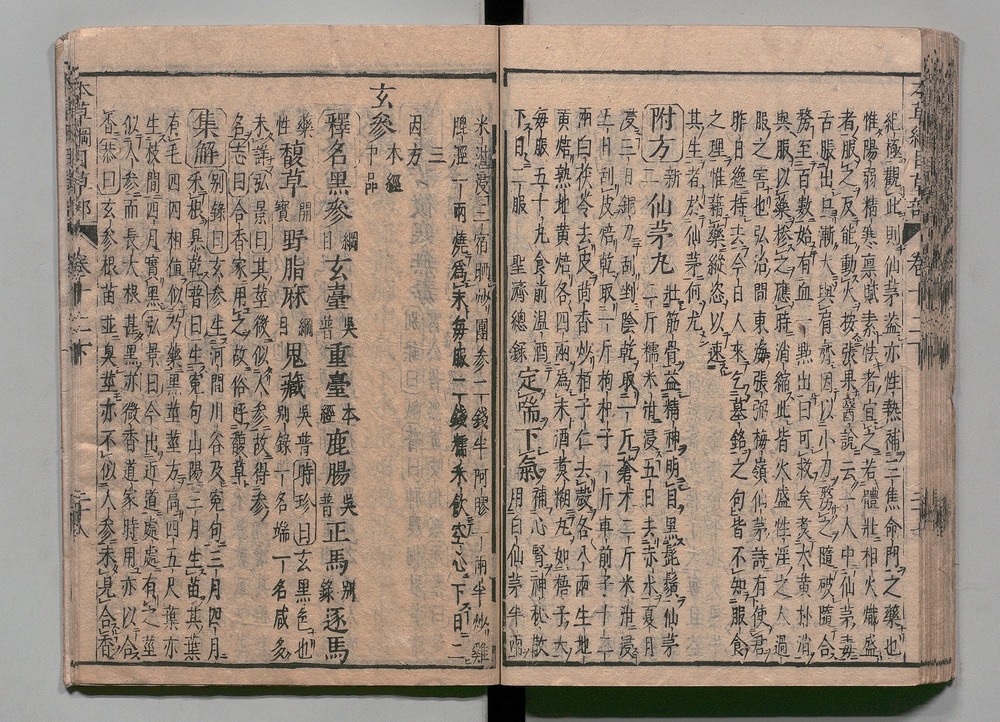 紀極觀此則仙茅蓋亦性熱補三焦命門之藥也
惟陽弱精寒稟賦素怯者宜之若體壯相火熾盛
者服之反能動火按張杲醫說云一人中仙茅毒
舌脹出口漸大與肩齊因以小刀剺之隨破隨合
剺至百數始有血一點出曰可救矣煮大黃朴消
與服以藥摻之應時消縮此皆火盛性淫之人過
服之害也弘治間東海張弼梅嶺仙茅詩有使君
昨日纔持去今日人來乞墓銘之句皆不知服食
之理惟藉藥縱恣以速
其生者於仙茅何尤
附方新二仙茅丸壯筋骨益精神明目黑髭鬚仙茅
二斤糯米泔浸五日去赤水夏月
浸三日銅刀刮剉陰乾取一斤蒼术二斤米泔浸
五日刮皮焙乾取一斤枸杞子一斤車前子十二
兩白茯苓去皮茴香炒柏子仁去殼各八兩生地
黃焙熟地黃焙各四兩為末酒煮糊丸如梧子大
每服五十丸食前溫酒
下日二服聖濟總錄定喘下氣補心腎神秘散
用白仙茅半兩
米泔浸三宿晒炒團參二錢半阿膠一兩半炒雞
膍胵一兩燒為末每服二錢糯米飲空心下日二
三
因方
玄參本經中品
釋名黑參綱目玄臺吳普重臺本經鹿腸吳普正馬別錄逐馬
藥性馥草開寶野脂麻綱目鬼藏吳普時珍曰玄黑色也
別錄一名端一名咸多
未詳弘景曰其莖微似人參故得參
名志曰合香家用之故俗呼馥草
集解別錄曰玄參生河間川谷及冤句三月四月
采根暴乾普曰生冤句山陽三月生苗其葉
有毛四四相值似芍藥黑莖莖方高四五尺葉亦
生枝間四月實黑弘景曰今出近道處處有之莖
似人參而長大根甚黑亦微香道家時用亦以合
香恭曰玄參根苗並臭莖亦不似人參未見合香
本草綱目草部 卷十二下